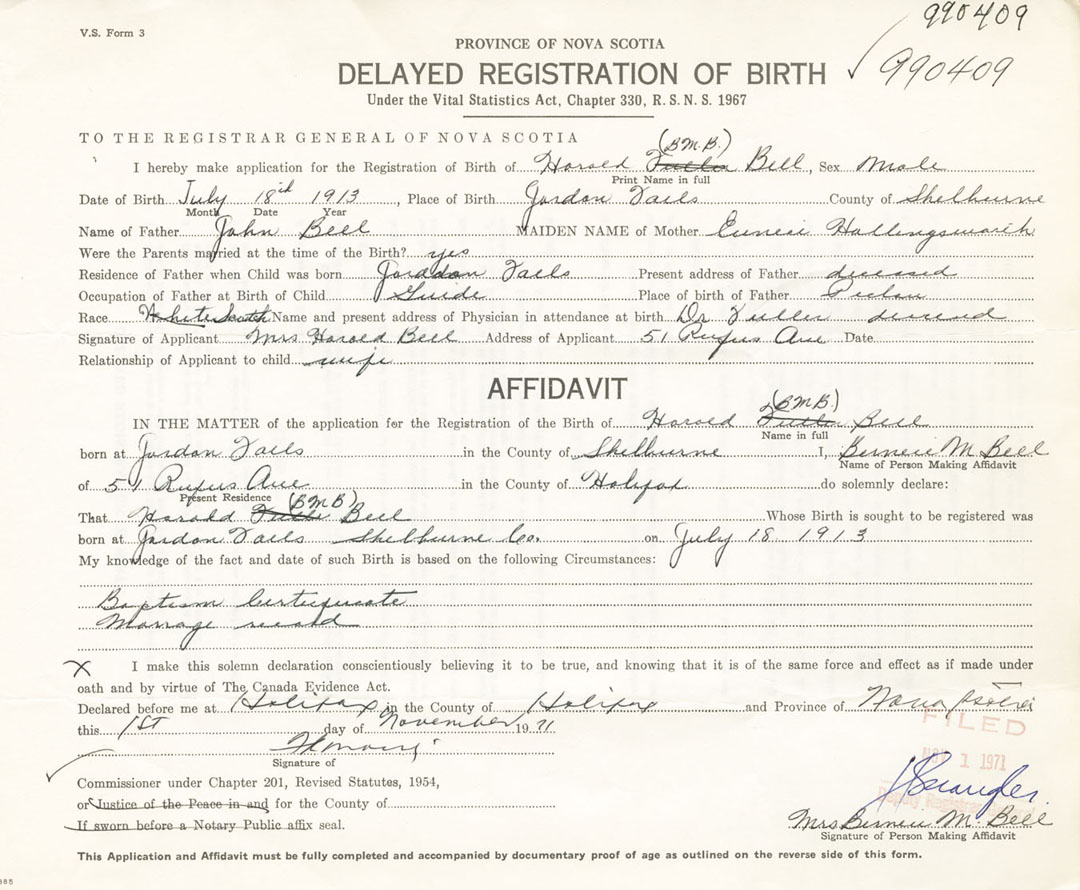 990409
V.S. Form 3
PROVINCE OF NOVA SCOTIA
990409
DELAYED REGISTRATION OF BIRTH
Under the Vital Statistics Act, Chapter 330, R. S. N. S. 1967
TO THE REGISTRAR GENERAL OF NOVA SCOTIA
(B.M.B.)
I hereby make application for the Registration of Birth of Harold Fuller Bell, Sex Male
Print Name in full
Date of Birth July 18th 1913, Place of Birth Jordan Falls County of Shelburne
Month Date Year
Name of Father John Bell MAIDEN NAME of Mother Hallingsworth
Were the Parents married at the time of the Birth? yes
Residence of Father when Child was born Jordan Falls Present address of Father
Occupation of Father at Birth of Child Guide Place of birth of Father
Race White Name and present address of Physician in attendance at birth Dr Fuller
Signature of Applicant Mrs Harold Bell Address of Applicant 51 Rufus Ave Date
Relationship of Applicant to child wife
AFFIDAVIT
(B.M.B.)
IN THE MATTER of the application for the Registration of the Birth of Harold Fuller Bell
Name in full
born at Jordan Falls in the County of Shelburne I, Bernice M Bell
Name of Person Making Affidavit
of 51 Rufus Ave in the County of Halifax do solemnly declare:
Present Residence (B.M.B)
That Harold Fuller Bell Whose Birth is sought to be registered was
born at Jordan Falls Shelburne Co. on July 18 1913
My knowledge of the fact and date of such Birth is based on the following Circumstances:
Baptism Certificate
Marrage record
X I make this solemn declaration conscientiously believing it to be true, and knowing that it is of the same force and effect as if made under
oath and by virtue of The Canada Evidence Act.
Declared before me at Halifax in the County of Halifax and Province of Nova Scotia
this 1ST day of November 1971
FILED
NOV 1 1971
Signature of
Commissioner under Chapter 201, Revised Statutes, 1954,
or Justice of the Peace in and for the County of
Deputy Registrar
If sworn before a Notary Public affix seal.
Mrs Bernice M. Bell
Signature of Person Making Affidavit
This Application and Affidavit must be fully completed and accompanied by documentary proof of age as outlined on the reverse side of this form.